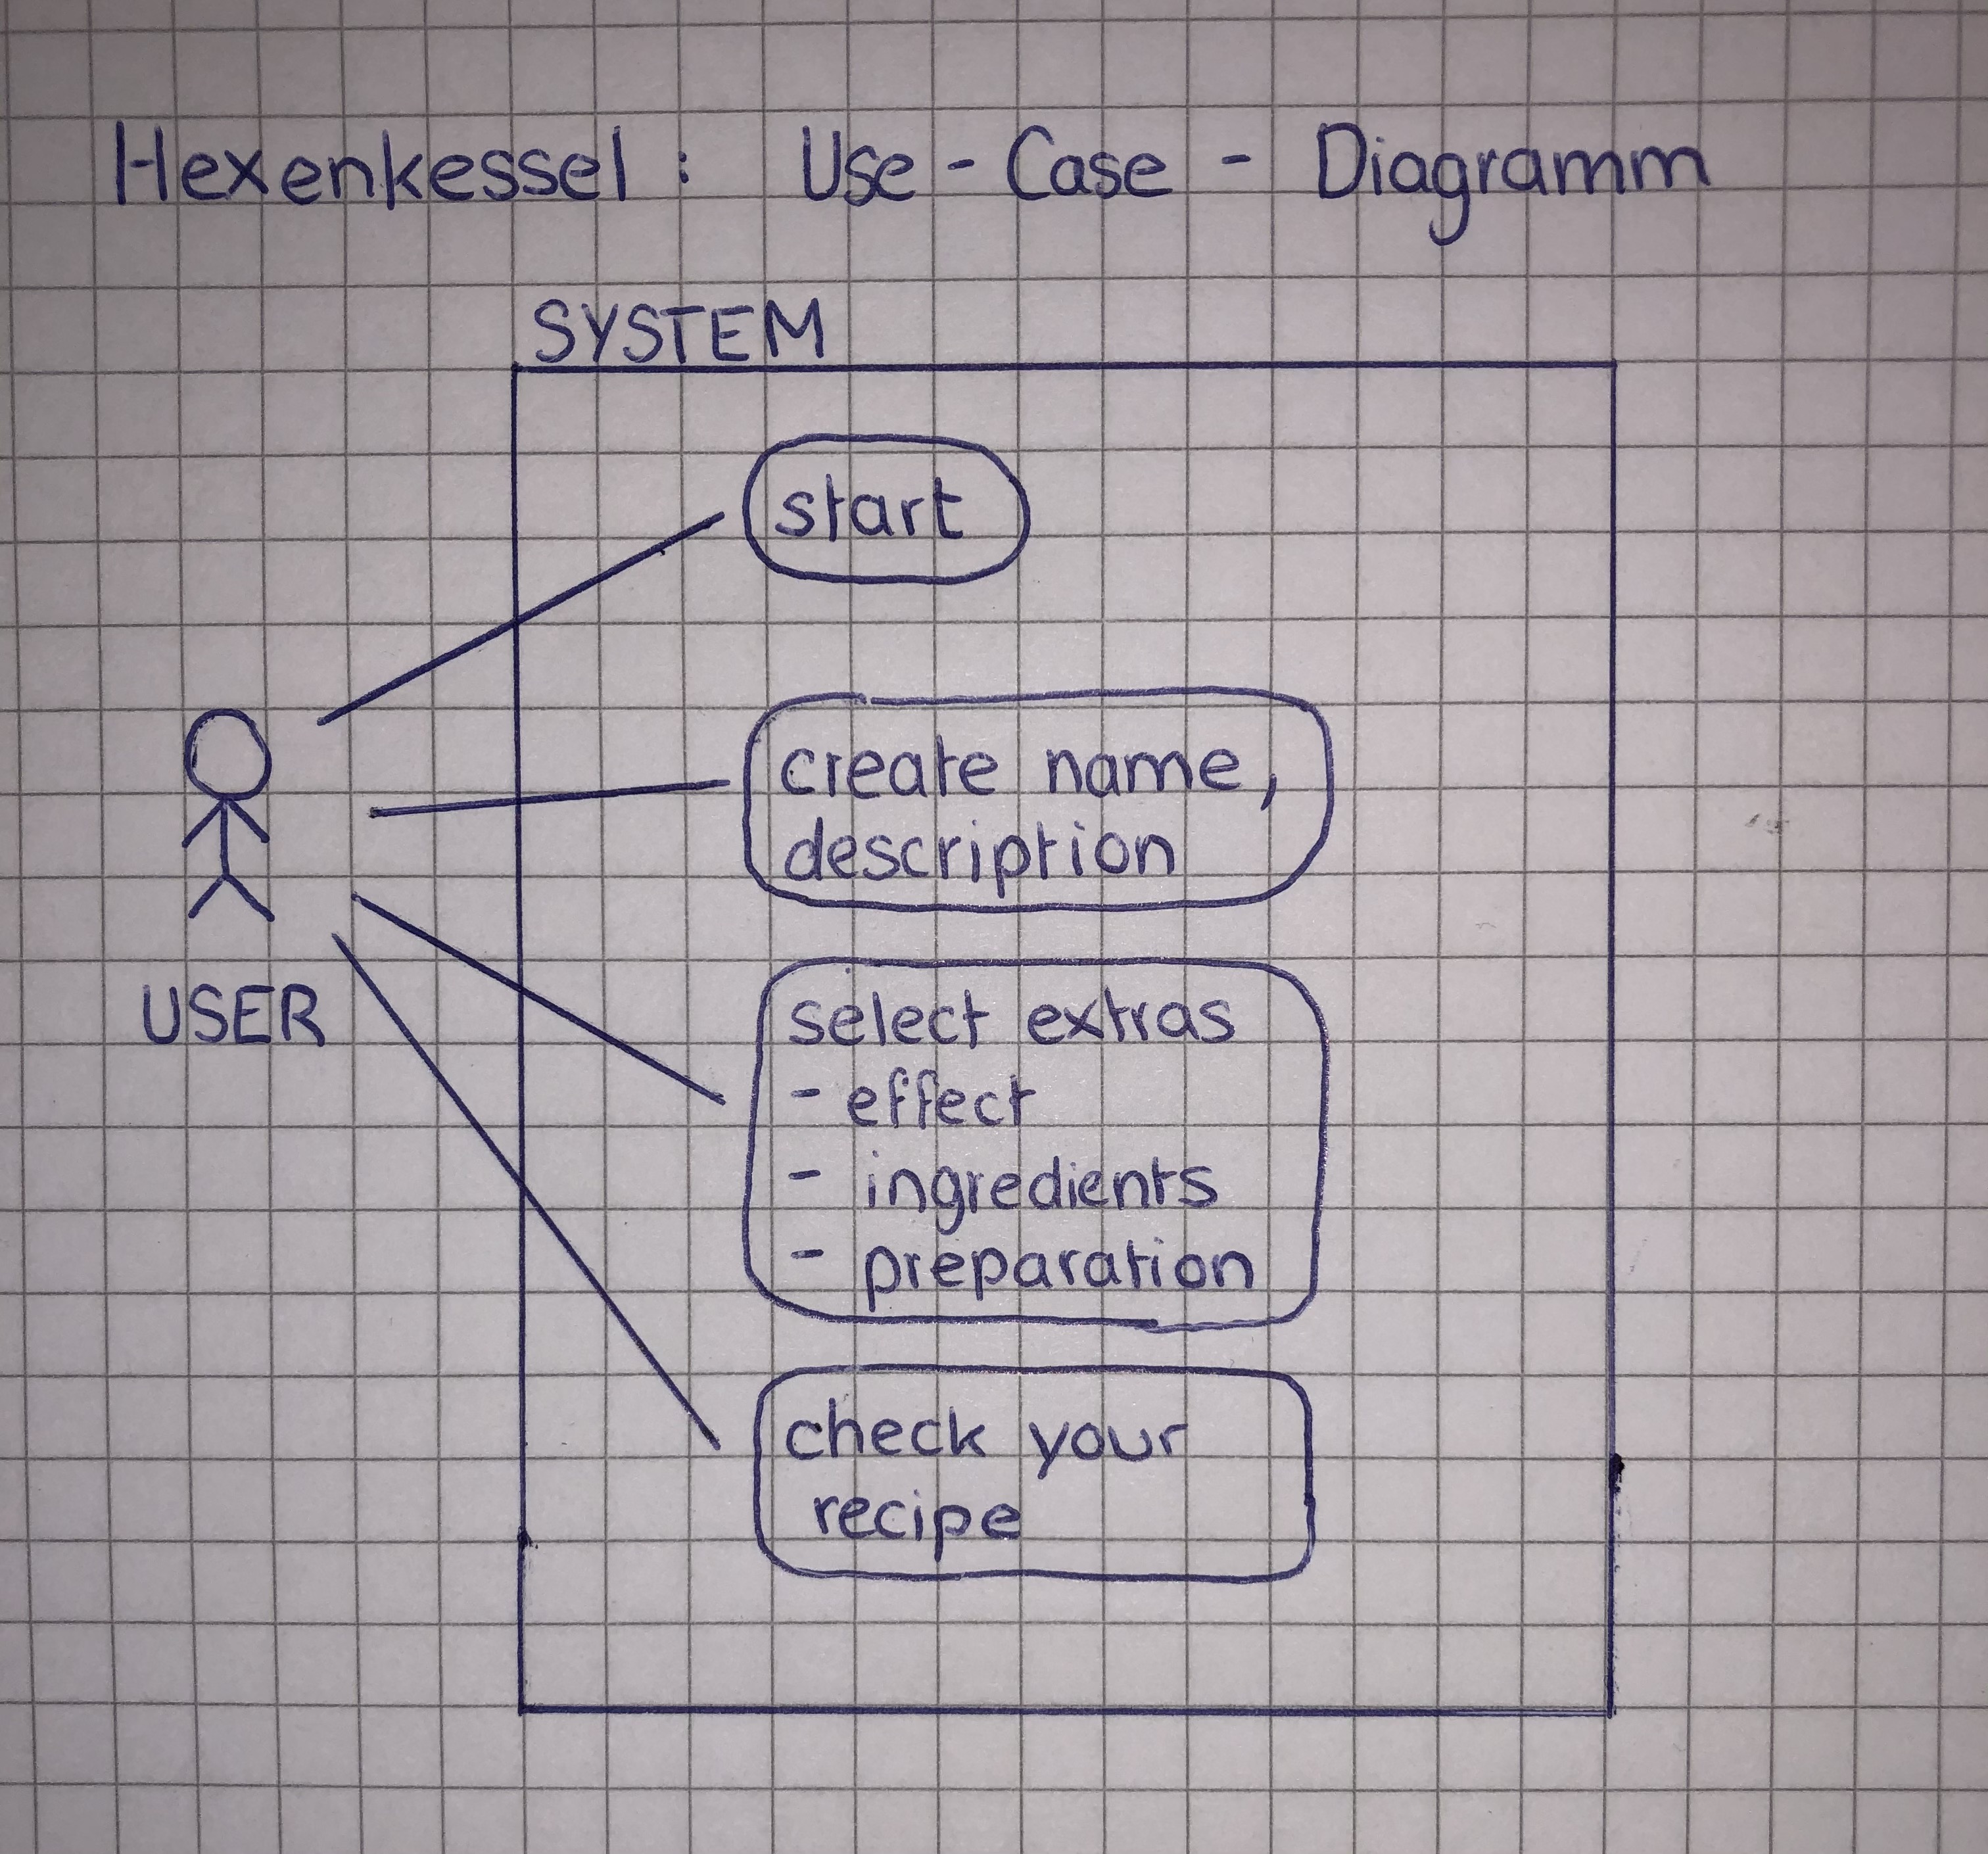 Hexenkessel: Use-Case-Diagramm
SYSTEM
start
create name,
description
USER
select extras
- effect
- ingredients
- preparation
check your
recipe